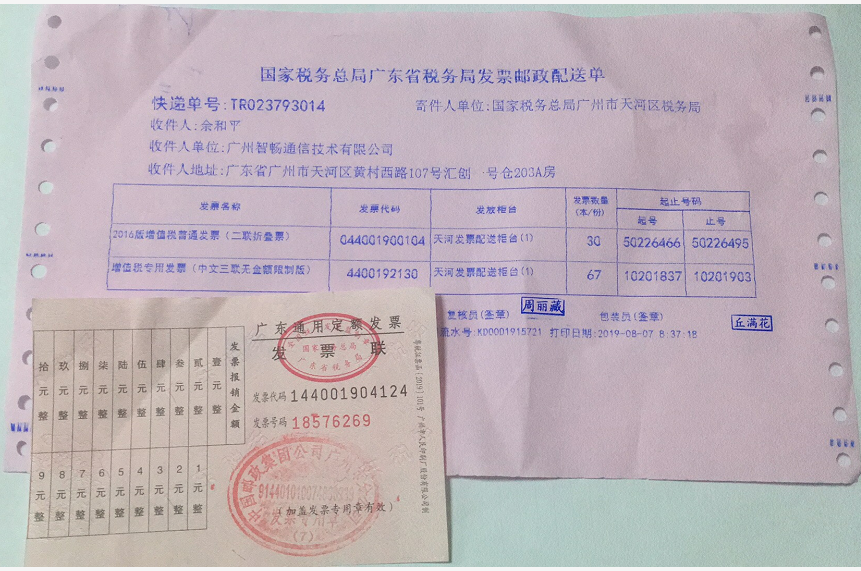 国家税务总局广东省税务局发票邮政配送单
快递单号:TR023793014 寄件人单位:国家税务总局广州市天河区税务局
收件人:余和平
收件人单位:广州智畅通信技术有限公司
收件人地址:广东省广州市天河区黄村西路107号汇创 号仓203A房
发票名称 发票代码 发放柜台 发票数量(本/份) 起止号码
起号 止号
2016版增值税普通发票(二联折叠票) 044001900104 天河发票配送柜台(1) 30 50226466 50226495
增值税专用发票(中文三联无金额限制版) 4400192130 天河发票配送柜台(1) 67 10201837 10201903
复核员(签章) 周丽藏 包装员(签章) 丘满花
流水号:KD0001915721 打印日期:2019-08-07 8:37:18
广东通用定额发票
发票联
国家税务总局
广东省税务局
发票代码 144001904124
发票号码 18576269
发票报销金额
壹元整
贰元整
叁元整
肆元整
伍元整
陆元整
柒元整
捌元整
玖元整
拾元整
1元整
2元整
3元整
4元整
5元整
6元整
7元整
8元整
9元整
(加盖发票专用章有效)
发票专用章
(7)